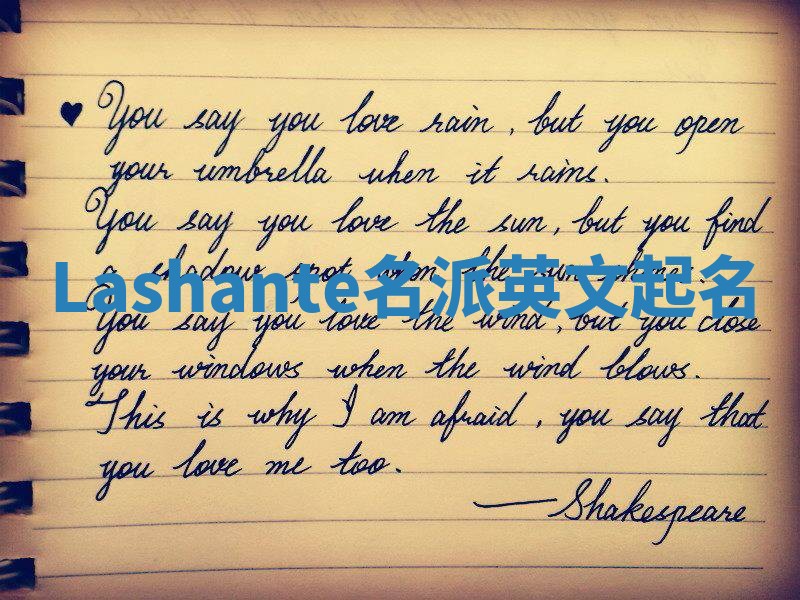 You say you love rain, but you open
your umbrella when it rains.
You say you love the sun, but you find
a shadow spot when the sun shines.
Lashante名派英文起名
You say you love the wind, but you close
your windows when the wind blows.
This is why I am afraid, you say that
you love me too.
—Shakespeare